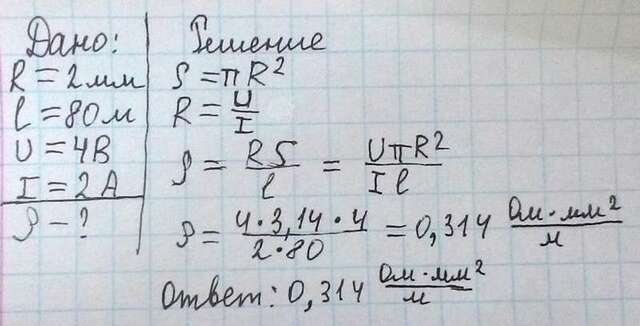 Дано:
R = 2мм
l = 80м
U = 4В
I = 2А
ρ - ?
Решение
S = πR²
R = U/I
ρ = RS/l = UπR²/Il
ρ = 4·3,14·4/2·80 = 0,314 Ом·мм²/м
Ответ: 0,314 Ом·мм²/м